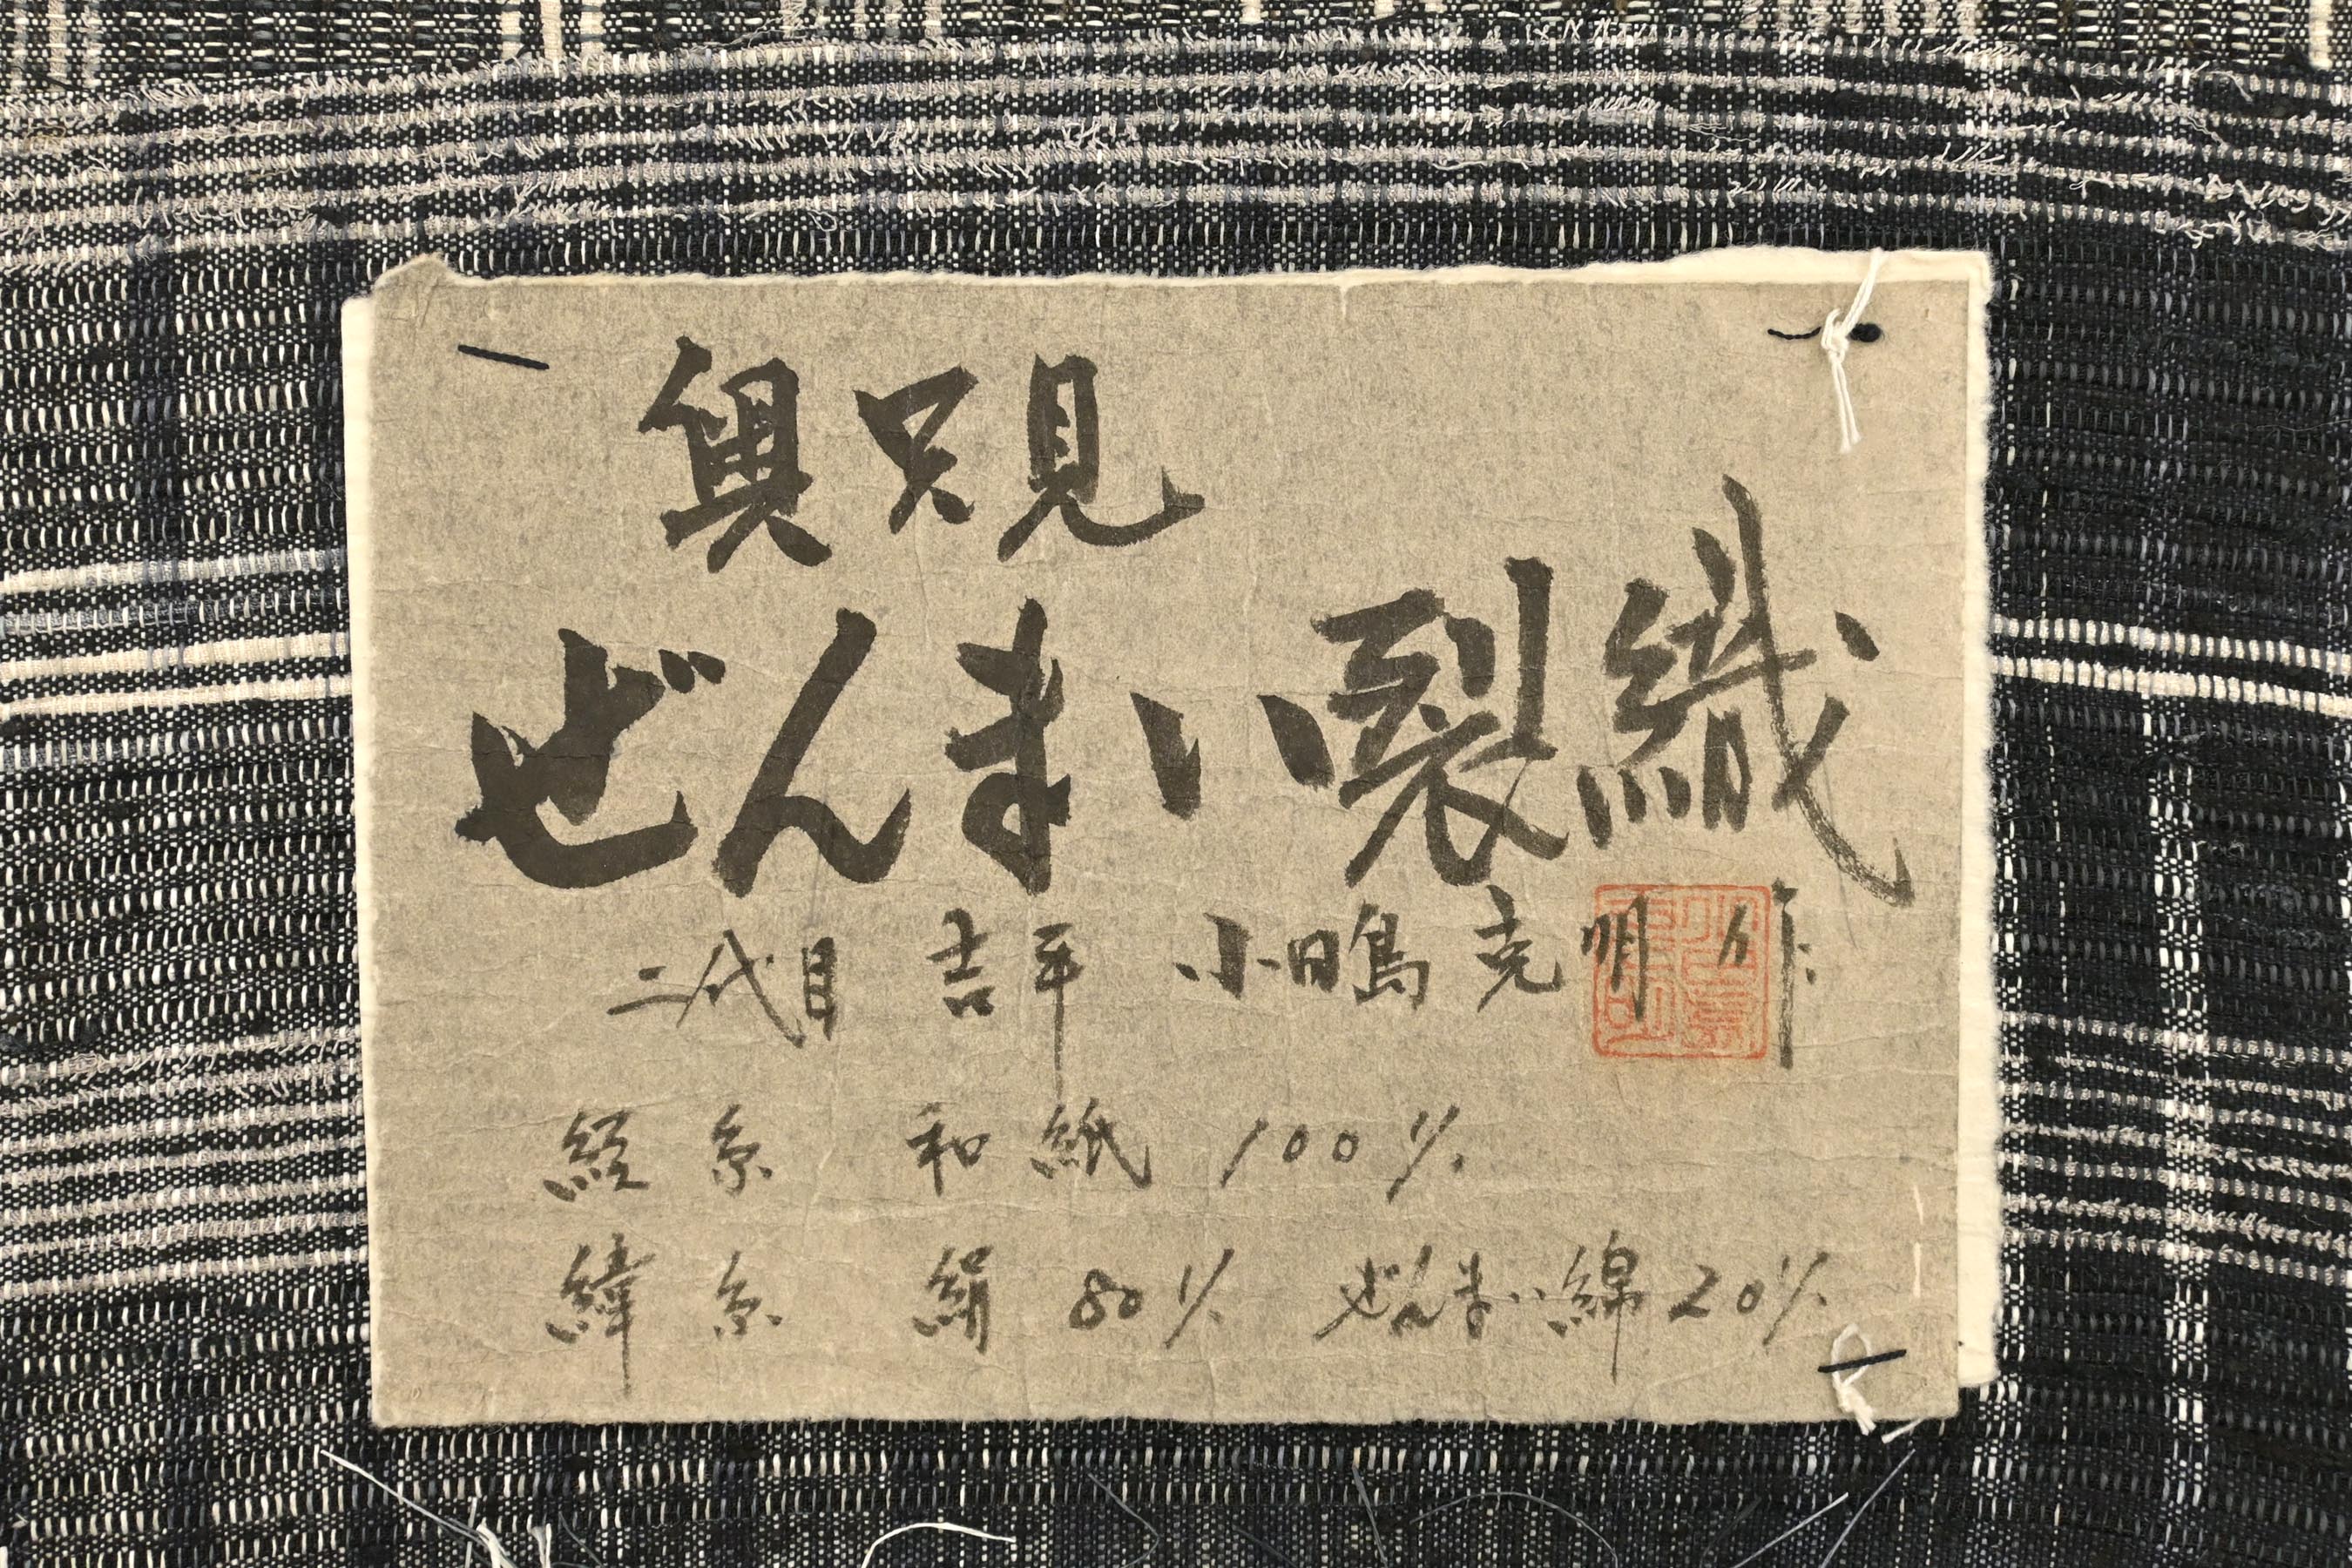 奥只見
ぜんまい裂織
二代目 吉平 小日嶋 克明 作
経糸 和紙 100%
緯糸 絹 80% ぜんまい綿 20%